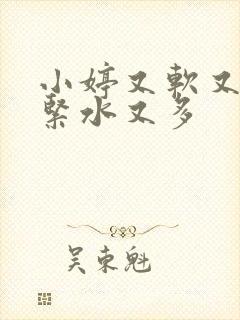 小婷又軟又
緊水又多
吴東魁